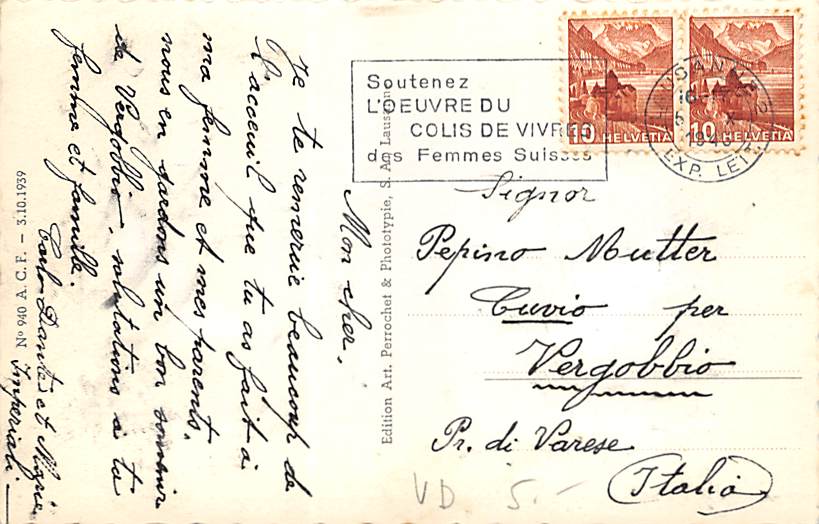 Mon cher.
Je te remercie beaucoup de
l'acceuil que tu as fait à
ma femme et mes parents.
nous en gardons un bon souvenir
de Vergobbio. salutations à ta
femme et famille.
Dante et
Imperiali.
Nº 940 A. C. F. — 3.10.1939
Edition Art. Perrochet & Phototypie, S. A., Lausann
Soutenez
L'OEUVRE DU
COLIS DE VIVRES
des Femmes Suisses
10 HELVETIA
10 HELVETIA
LAUSANNE
EXP. LET
Signor
Pepino Mutter
Cuvio per
Vergobbio
Pr. di Varese
Italia
VD 5.-